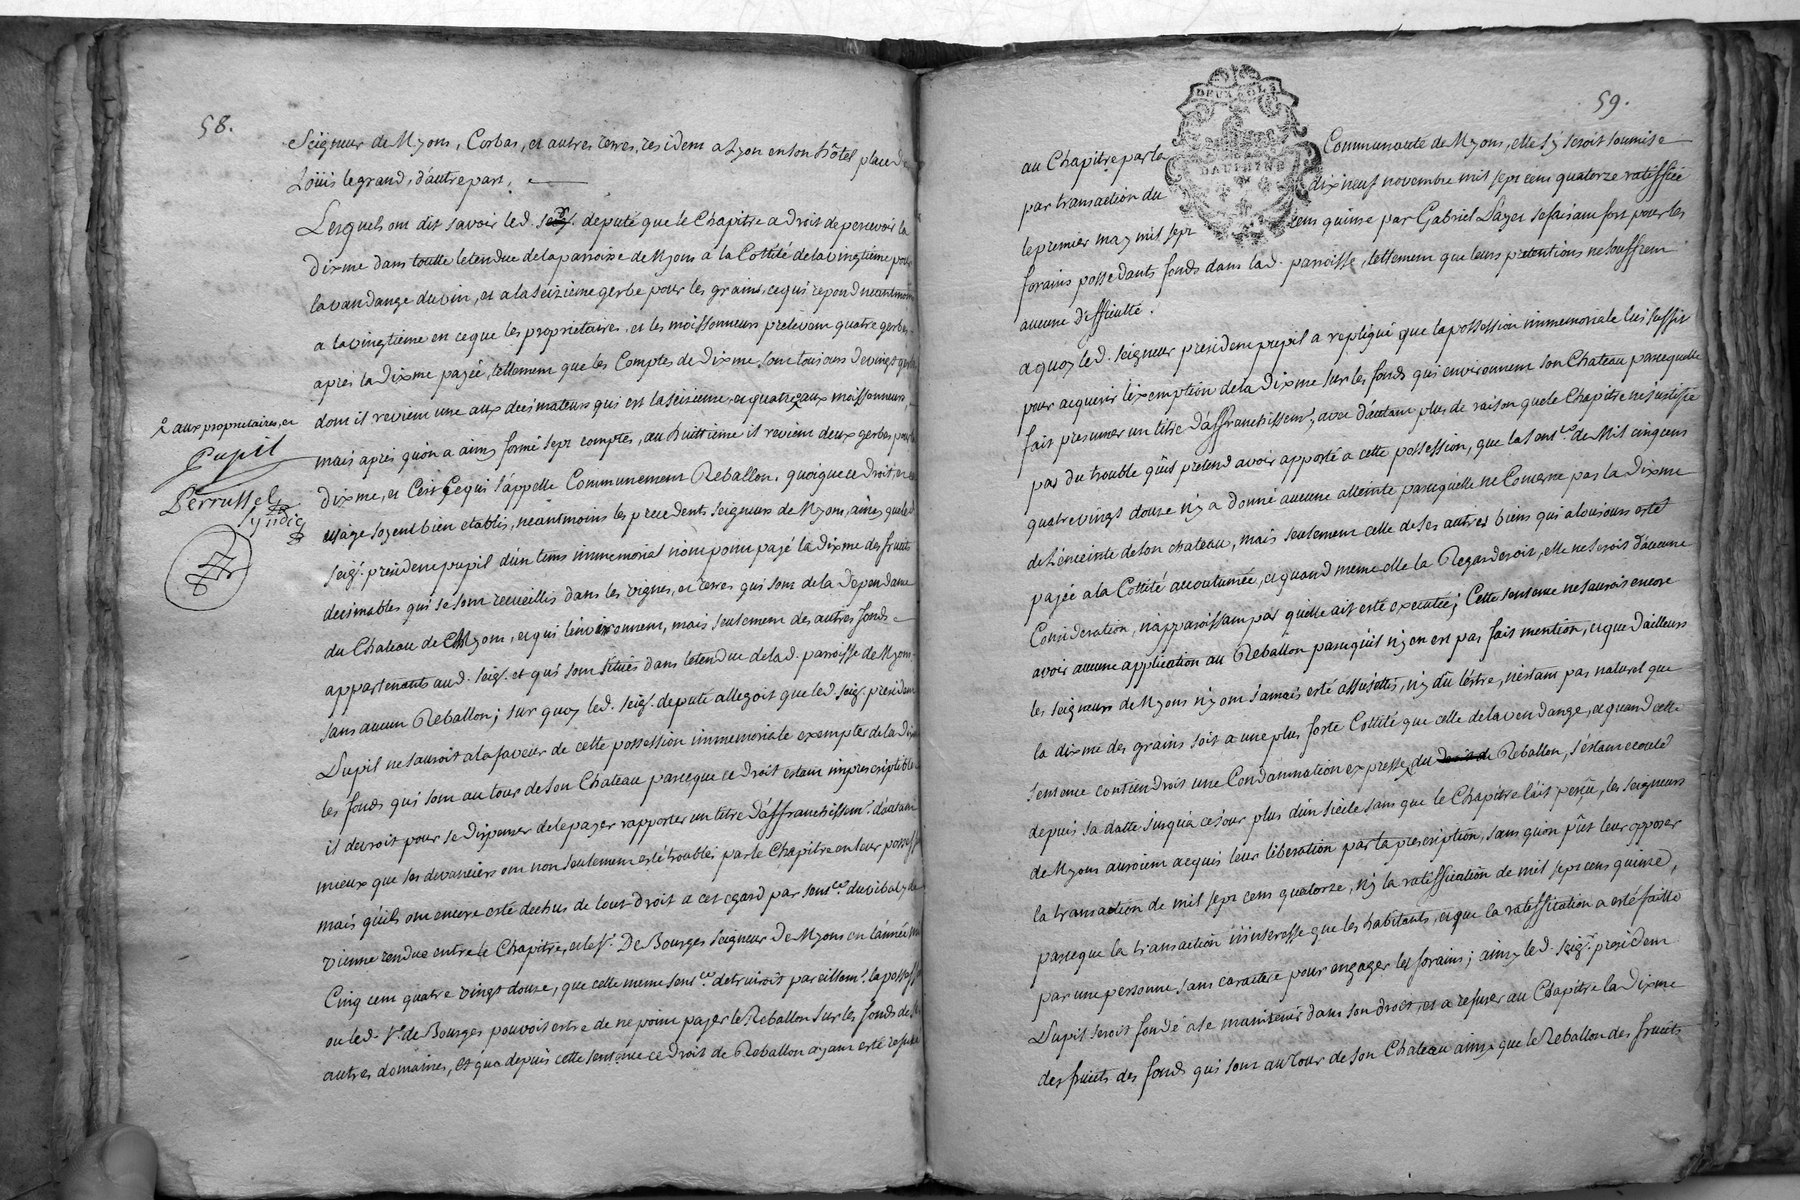 58.
Seigneur de Myons, Corbas, et autres terres, resident a Lyon en son hôtel place de
Loüis le grand, d'autre part.
Lesquels ont dit savoir led. seigr. deputé que le Chapitre a droit de percevoir la
dixme dans toutte letendue de la parroisse de Myons a la Cottité de la vingtieme pour
la vandange du vin, et a la seizieme gerbe pour les grains, ce qui repond neantmoins
a la vingtieme en ce que les proprietaires, et les moissonneurs prelevent quatre gerbes
aprés la Dixme payée, tellement que les Comptes de Dixme sont toujours de vingt gerbes
dont il revient une aux decimateurs qui est la seizieme, et quatre aux moissonneurs,
^ aux proprietaires, et
Pupil
Perrussel
syndic
mais aprés qu'on a ainsy formé sept comptes, au huittieme il revient deux gerbes pour la
dixme, et C'est ce qui s'appelle Communement Reballon. quoique ce droit, et cet
usage soyent bien etablis, neantmoins les precedents seigneurs de Myons, ainsy que led.
seigr. president pupil d'un tems immemorial n'ont point payé la dixme des fruits
decimables qui se sont recueillis dans les vignes, et terres qui sont de la dependance
du Chateau de Myons, et qui l'environnent, mais seulement des autres fonds
appartenants aud. seigr. et qui sont situés dans letendue de lad. parroisse de Myons
sans aucun Reballon; sur quoy led. seigr. deputé allegoit que led. seigr. president
Pupil ne sauroit a la faveur de cette possession immemoriale exempter de la dixme
les fonds qui sont au tour de son Chateau parceque ce droit estant imprescriptible
il devroit pour se dispenser de le payer rapporter un titre d'affranchissemt. d'autant
mieux que ses devanciers ont non seulement esté troublés par le Chapitre en leur possession
mais qu'ils ont encore esté dechus de tout droit a cet egard par sence. du vibaly de
vienne rendue entre le Chapitre, et le Sr. De Bourges seigneur de Myons en l'année mil
Cinq cent quatre vingt douze, que cette meme sence. detruiroit pareillemt. la possession
ou led. Sr. de Bourges pouvoit estre de ne point payer le Reballon sur les fonds de ses
autres domaines, et que depuis cette sentence ce droit de Reballon ayant esté refusé
59.
DEUX SOLS
DAUPHINE
au Chapitre par la Communauté de Myons, elle s'y seroit soumise
par transaction du dixneuf novembre mil sept cens quatorze ratiffiée
le premier may mil sept cens quinse par Gabriel Payet se faisant fort pour les
forains possedants fonds dans lad. parroisse, tellement que leurs pretentions ne souffrent
aucune difficulté.
a quoy led. seigneur president pupil a repliqué que la possession immemoriale lui suffit
pour acquerir l'exemption de la Dixme sur les fonds qui environnent son Chateau parcequelle
fait presumer un titre d'affranchissemt., avec d'autant plus de raison que le Chapitre ne justifie
pas du trouble qu'il pretend avoir apporté a cette possession, que la sence. de Mil cinq cens
quatre vingt douze n'y a donné aucune atteinte parcequelle ne Concerne pas la Dixme
de l'enceinte de son chateau, mais seulement celle de ses autres biens qui a toujours esté
payée a la Cottité accoutumée, et quand meme elle la Regarderoit, elle ne seroit d'aucune
Consideration, n'apparoissant pas quelle ait esté executée; Cette sentence ne sauroit encore
avoir aucune application au Reballon parcequ'il n'y en est pas fait mention, et que d'ailleurs
les seigneurs de Myons n'y ont jamais esté assujettis, n'y dû l'estre, n'estant pas naturel que
la dixme des grains soit a une plus forte Cottité que celle de la vendange, et quand cette
sentence contiendroit une Condamnation expresse du Reballon, s'estant ecoulé
depuis sa datte jusqua ce jour plus d'un siecle sans que le Chapitre l'ait perçû, les seigneurs
de Myons auroient acquis leur liberation par la prescription, sans qu'on pût leur opposer
la transaction de mil sept cens quatorze, n'y la ratiffication de mil sept cens quinze,
parceque la transaction n'interesse que les habitants, et que la ratiffication a esté faitte
par une personne sans caractere pour engager les forains; ainsy led. seigr. president
Pupil seroit fondé a se maintenir dans son droit, et a refuser au Chapitre la Dixme
des fruits des fonds qui sont au tour de son Chateau ainsy que le Reballon des fruits